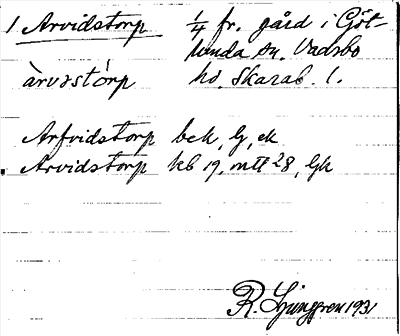 1 Arvidstorp ¼ fr. gård i Göt-
lunda sn. Vadsbo
àrvǝstórp hd. Skarab. l.
Arfvidstorp bek, G, ek
Arvidstorp kb 19, mtl 28, Gk
R. Ljunggren 1931